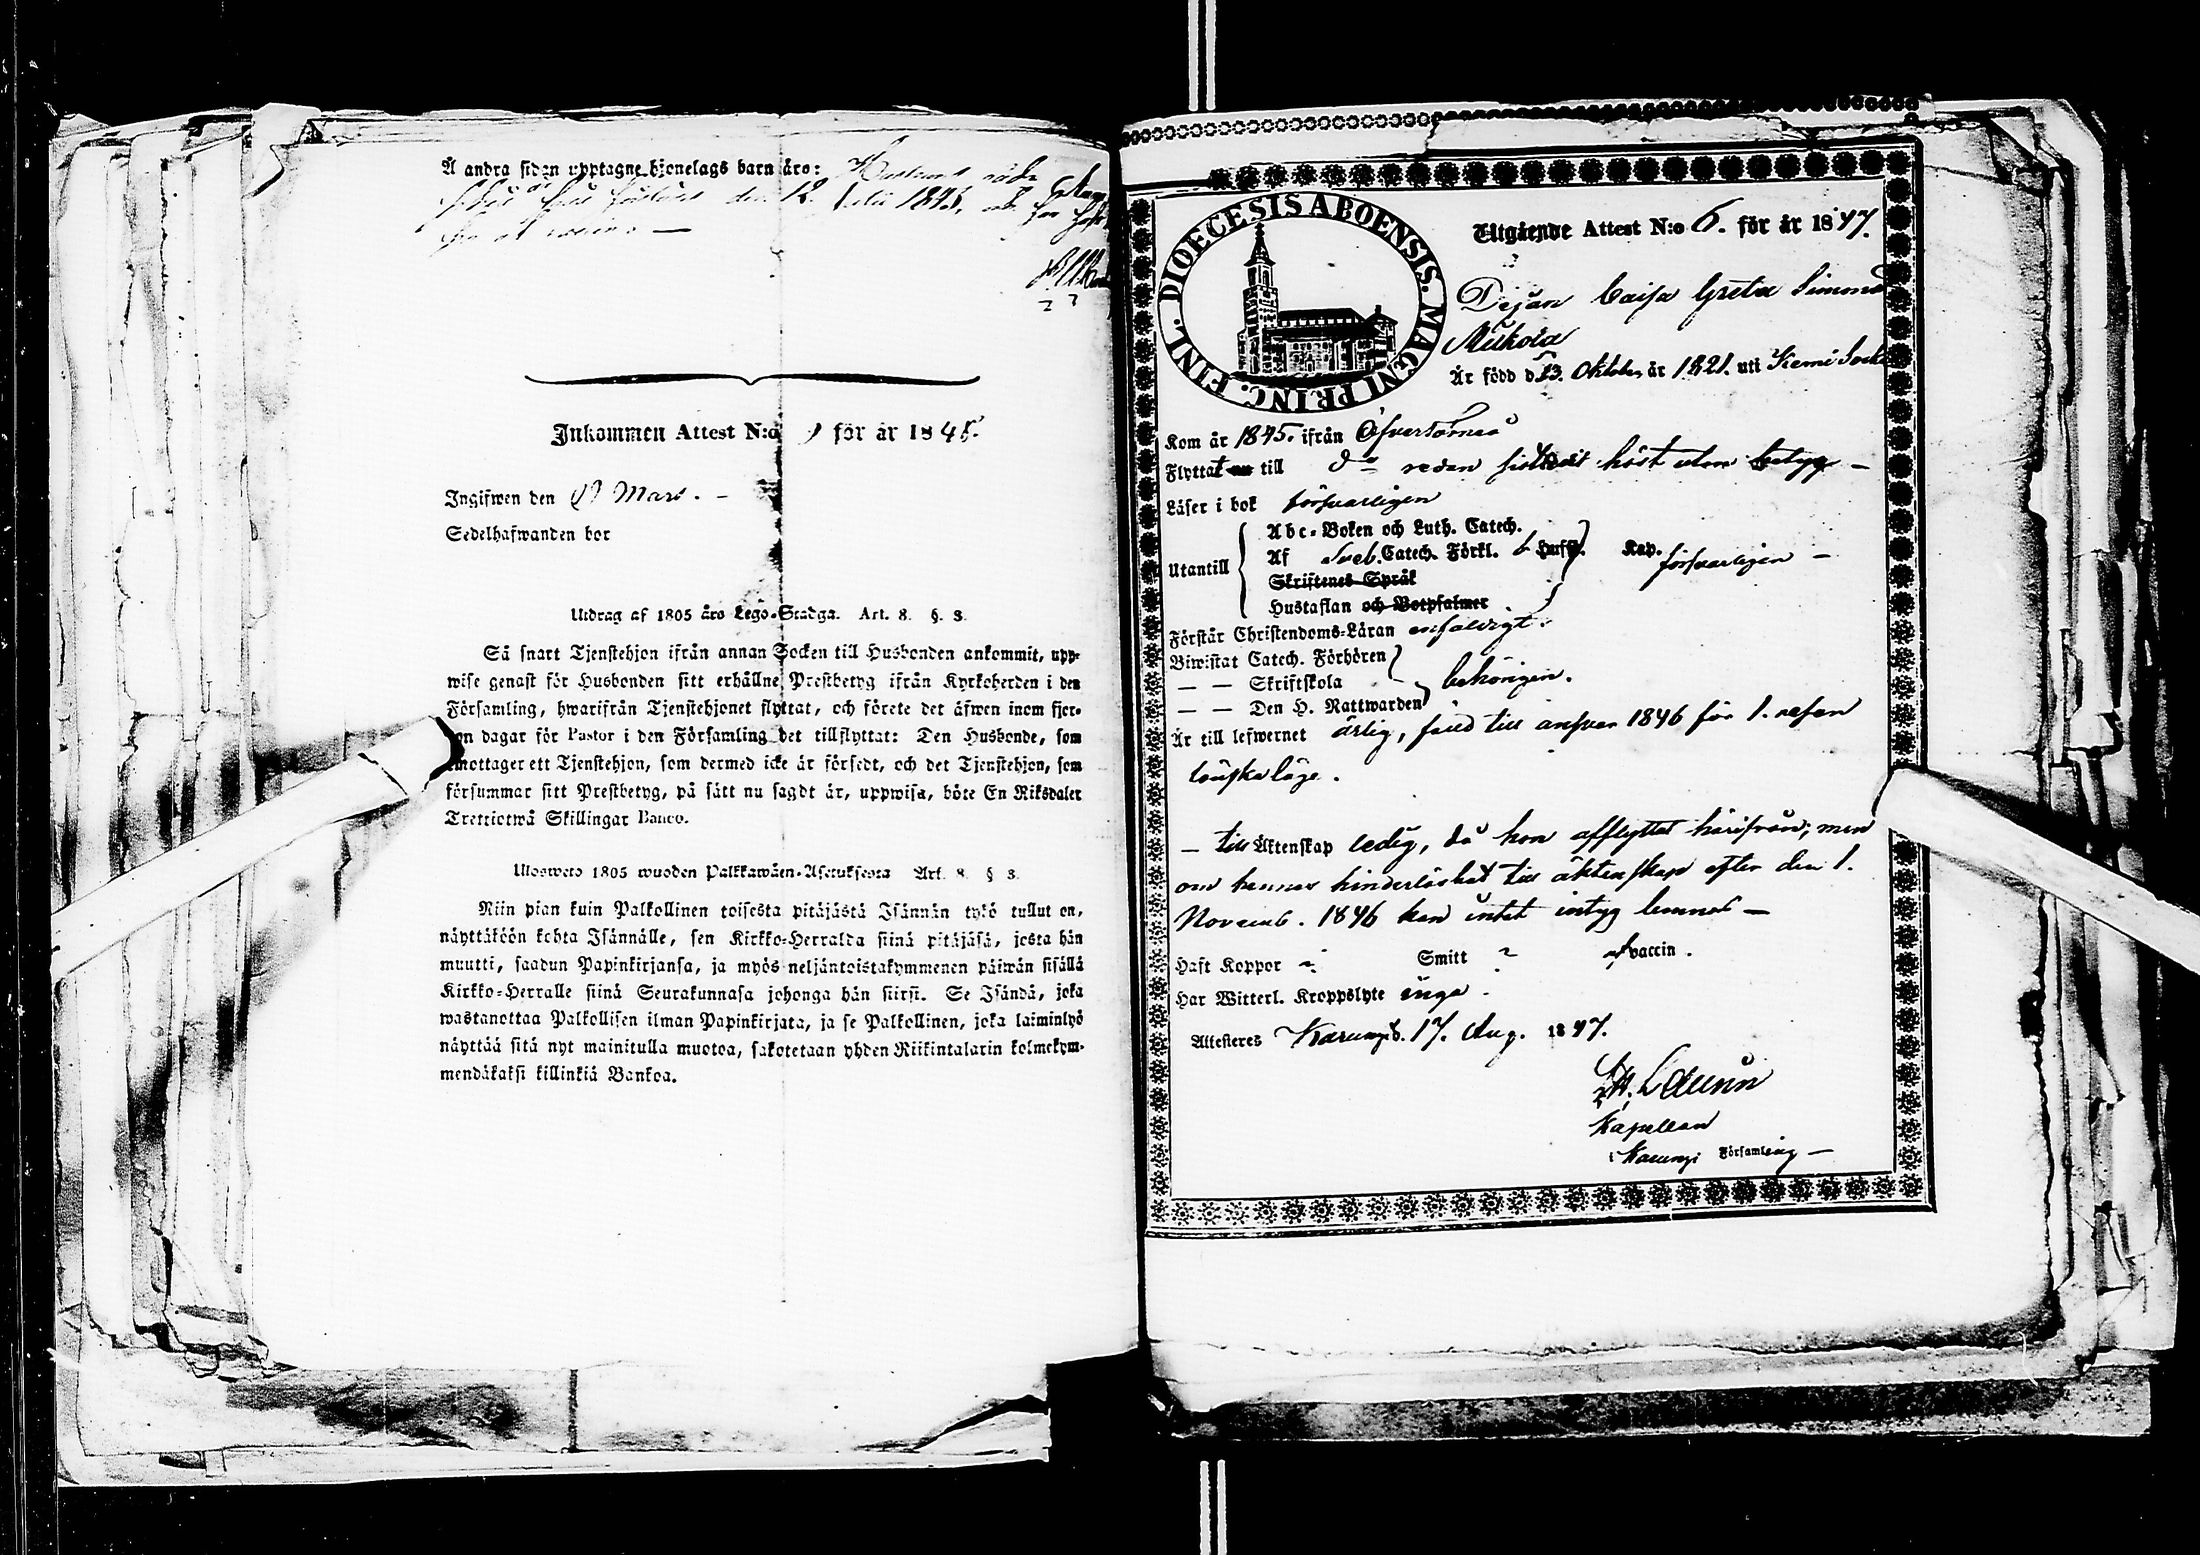 Å andra sidan upptagne hjonelags barn äro:
den 12. Julii 1845,
Inkommen Attest N:o 9 för år 1845.
Ingifwen den Mars. –
Sedelhafwanden bor
Utdrag af 1805 års Lego-Stadga. Art. 8. §. 3.
Så snart Tjenstehjon ifrån annan Socken till Husbonden ankommit, upp-
wise genast för Husbonden sitt erhållne Prestbetyg ifrån Kyrkoherden i den
Församling, hwarifrån Tjenstehjonet flyttat, och förete det äfwen inom fjor-
on dagar för Pastor i den Församling det tillflyttat: Den Husbonde, som
mottager ett Tjenstehjon, som dermed icke är försedt, och det Tjenstehjon, som
försummar sitt Prestbetyg, på sätt nu sagdt är, uppwisa, böte En Riksdaler
Trettiotwå Skillingar Banco.
Ulosweto 1805 wuoden Palkkawäen-Asetuksesta Art. 8. § 3.
Niin pian kuin Palkollinen toisesta pitäjästä Isännän tykö tullut on,
näyttäköön kohta Isännälle, sen Kirkko-Herralda siinä pitäjäsä, josta hän
muutti, saadun Papinkirjansa, ja myös neljäntoistakymmenen päiwän sisällä
Kirkko-Herralle siinä Seurakunnasa johonga hän siirsi. Se Isändä, joka
wastanottaa Palkollisen ilman Papinkirjata, ja se Palkollinen, joka laiminlyö
näyttää sitä nyt mainitulla muotoa, sakotetaan yhden Riikintalarin kolmekym-
mendäkaksi killinkiä Bankoa.
FINL. DIOECESIS ABOENSIS. MAGNI PRINC.
Utgående Attest N:o 6. för år 1847.
Pigan Caisa Greta Simons
Mukola
Är född d. 13. Oktober år 1821. uti Kemi Sock
Kom år 1845. ifrån Öfvertorneå
Flyttat nu till d:o redan sistledit höst utan betyg –
Läser i bok försvarligen
Utantill
Abc-Boken och Luth. Catech.
Af Sveb. Catech. Förkl. 6 Hufst. Kap. försvarligen –
Skriftenes Språk
Hustaflan och Botpsalmer
Förstår Christendoms-Läran enfaldigt.
Biwistat Catech. Förhören
— — Skriftskola behörigen.
— — Den H. Nattwarden
Är till lefwernet ärlig, född till ansvar 1846 för 1. resan
lönskaläge.
– till Äktenskap ledig, då hon afflyttat härifrån; men
om hennes hinderlöshet till äktenskap efter den 1.
Novemb. 1846 kan intet intyg lemnas –
Haft Koppor Smitt vaccin.
Har Witterl. Kroppslyte inga.
Attesteres Karungi d. 17. Aug. 1847.
Kapellan
i Karungi Församling –